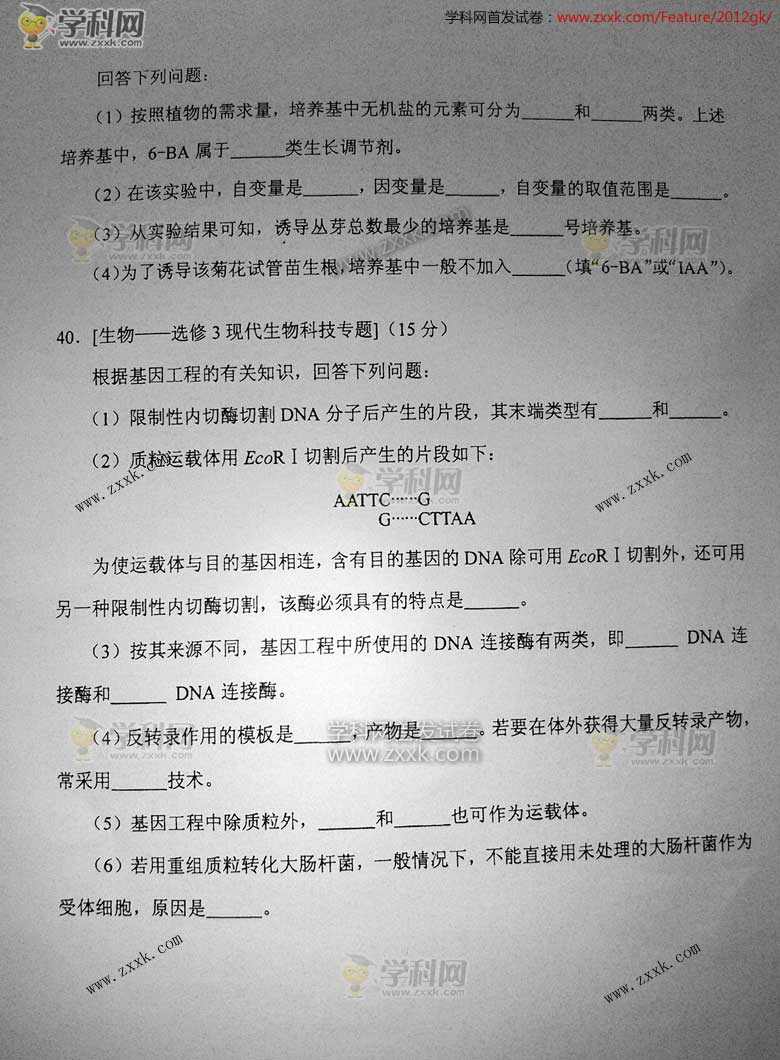 学科网
www.zxxk.com
学科网首发试卷：www.zxxk.com/Feature/2012gk/
回答下列问题：
（1）按照植物的需求量，培养基中无机盐的元素可分为______和______两类。上述
培养基中，6-BA 属于______类生长调节剂。
（2）在该实验中，自变量是______，因变量是______，自变量的取值范围是______。
（3）从实验结果可知，诱导丛芽总数最少的培养基是______号培养基。
学科网
zxxk.com
www.zxxk.com
学科网
zxxk.com
（4）为了诱导该菊花试管苗生根，培养基中一般不加入______（填“6-BA”或“IAA”）。
40．[生物——选修 3 现代生物科技专题]（15 分）
根据基因工程的有关知识，回答下列问题：
（1）限制性内切酶切割 DNA 分子后产生的片段，其末端类型有______和______。
（2）质粒运载体用 EcoRⅠ切割后产生的片段如下：
www.zxxk.com
学科网
zxxk.com
www.zxxk.com
AATTC……G
G……CTTAA
为使运载体与目的基因相连，含有目的基因的 DNA 除可用 EcoRⅠ切割外，还可用
另一种限制性内切酶切割，该酶必须具有的特点是______。
（3）按其来源不同，基因工程中所使用的 DNA 连接酶有两类，即______ DNA 连
接酶和______ DNA 连接酶。
（4）反转录作用的模板是______，产物是______。若要在体外获得大量反转录产物，
学科网
zxxk.com
学科网首发试卷
www.zxxk.com
学科网
zxxk.com
常采用______技术。
（5）基因工程中除质粒外，______和______也可作为运载体。
（6）若用重组质粒转化大肠杆菌，一般情况下，不能直接用未处理的大肠杆菌作为
受体细胞，原因是______。
www.zxxk.com
学科网
zxxk.com
www.zxxk.com